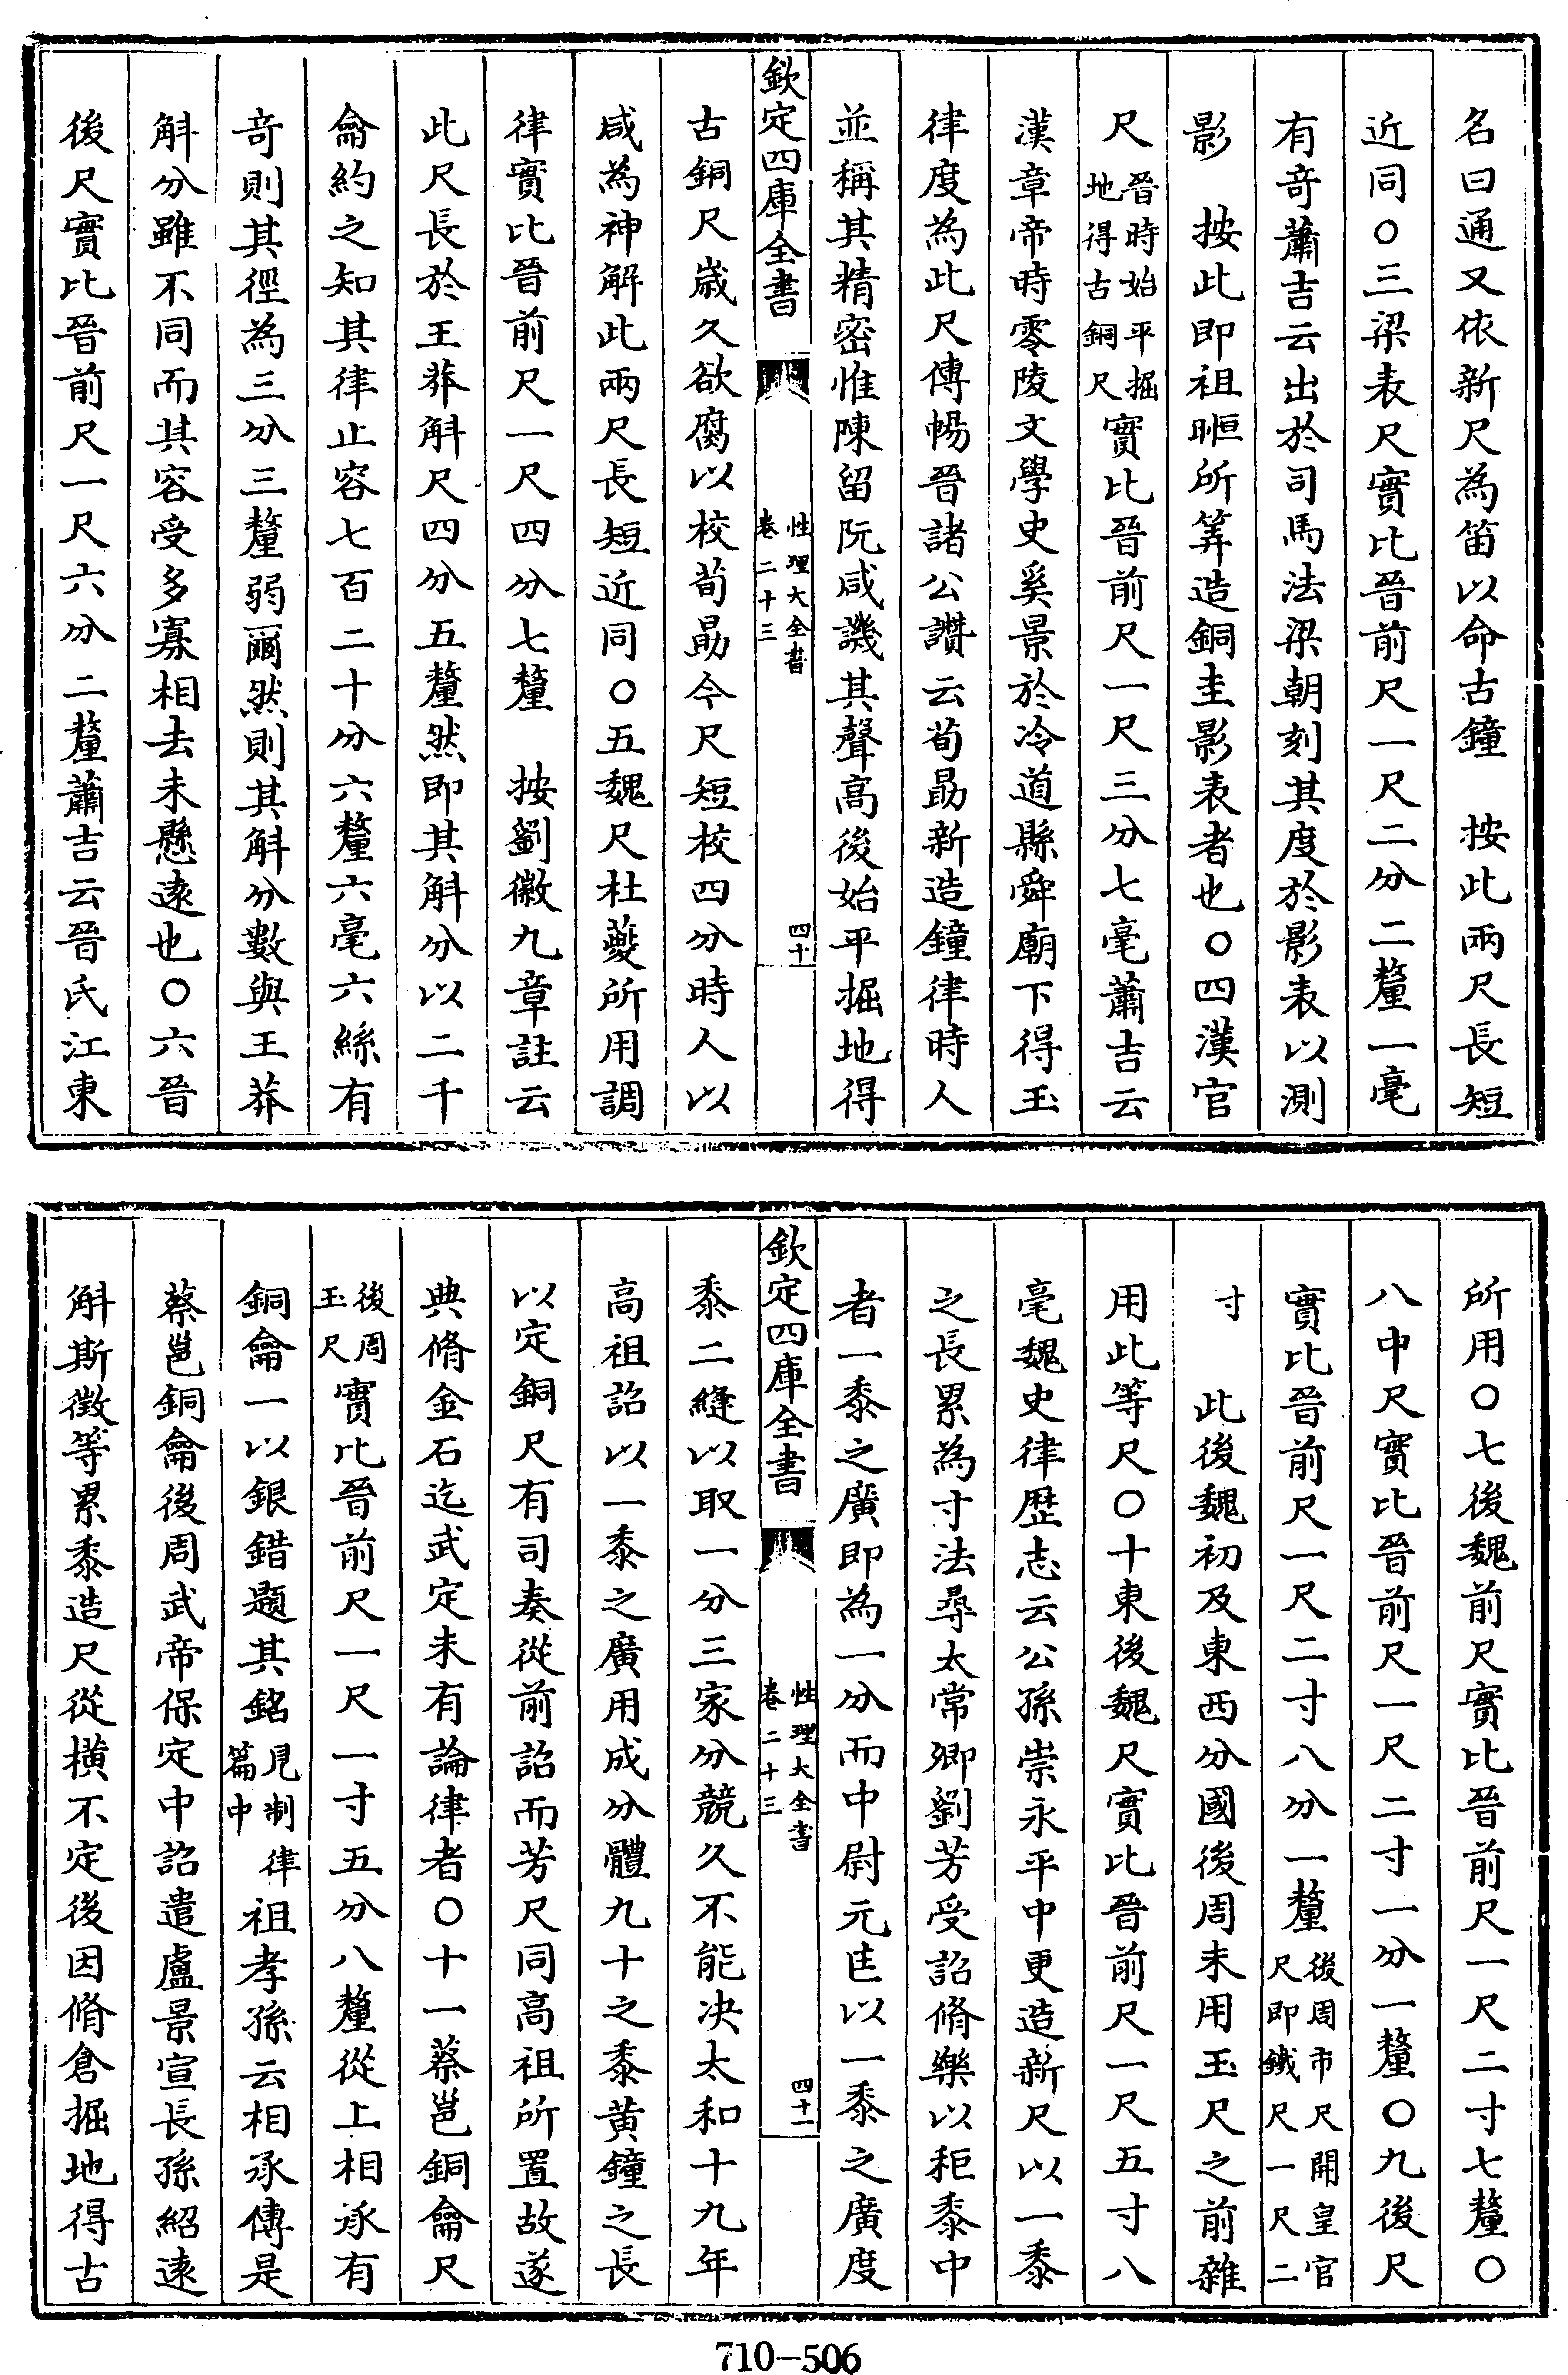 名曰通又依新尺為笛以命古鐘　按此兩尺長短
近同○三梁表尺實比晉前尺一尺二分二釐一毫
有奇蕭吉云出於司馬法梁朝刻其度於影表以測
影　按此即祖暅所筭造銅圭影表者也○四漢官
尺晉時始平掘地得古銅尺實比晉前尺一尺三分七毫蕭吉云
漢章帝時零陵文學史奚景於泠道縣舜廟下得玉
律度為此尺傅暢晉諸公讚云荀勗新造鐘律時人
並稱其精密惟陳留阮咸譏其聲高後始平掘地得
欽定四庫全書
性理大全書
卷二十三
四十
古銅尺歲久欲腐以校荀勗今尺短校四分時人以
咸為神解此兩尺長短近同○五魏尺杜夔所用調
律實比晉前尺一尺四分七釐　按劉徽九章註云
此尺長於王莽斛尺四分五釐然即其斛分以二千
龠約之知其律止容七百二十分六釐六毫六絲有
奇則其徑為三分三釐弱爾然則其斛分數與王莽
斛分雖不同而其容受多寡相去未懸遠也○六晉
後尺實比晉前尺一尺六分二釐蕭吉云晉氏江東
所用○七後魏前尺實比晉前尺一尺二寸七釐○
八中尺實比晉前尺一尺二寸一分一釐○九後尺
實比晉前尺一尺二寸八分一釐後周市尺開皇官尺即鐵尺一尺二
寸　此後魏初及東西分國後周未用玉尺之前雜
用此等尺○十東後魏尺實比晉前尺一尺五寸八
毫魏史律歷志云公孫崇永平中更造新尺以一黍
之長累為寸法尋太常卿劉芳受詔脩樂以秬黍中
者一黍之廣即為一分而中尉元匡以一黍之廣度
欽定四庫全書
性理大全書
卷二十三
四十一
黍二縫以取一分三家分競久不能決太和十九年
高祖詔以一黍之廣用成分體九十之黍黃鐘之長
以定銅尺有司奏從前詔而芳尺同高祖所置故遂
典脩金石迄武定未有論律者○十一蔡邕銅龠尺
後周玉尺實比晉前尺一尺一寸五分八釐從上相承有
銅龠一以銀錯題其銘見制律篇中祖孝孫云相承傳是
蔡邕銅龠後周武帝保定中詔遣盧景宣長孫紹遠
斛斯徵等累黍造尺從橫不定後因脩倉掘地得古
710-506